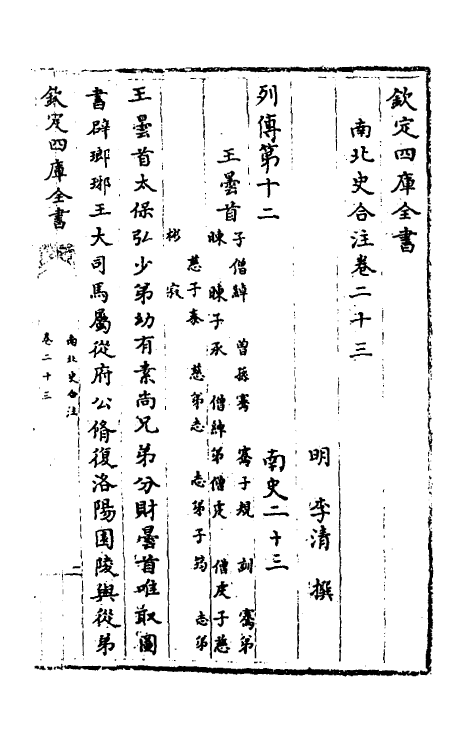 欽定四庫全書
南北史合注卷二十三
明 李清 撰
列傳第十二 南史二十三
王曇首
子僧綽 曾孫騫 騫子規 訓 騫弟
暕 暕子承 僧綽弟僧虔 僧虔子慈
慈子泰 慈弟志 志弟子筠 志弟
彬 寂
王曇首太保弘少弟幼有素尚兄弟分財曇首唯取圖
書辟瑯琊王大司馬屬從府公脩復洛陽園陵與從弟
欽定四庫全書
南北史合注
卷二十三
二